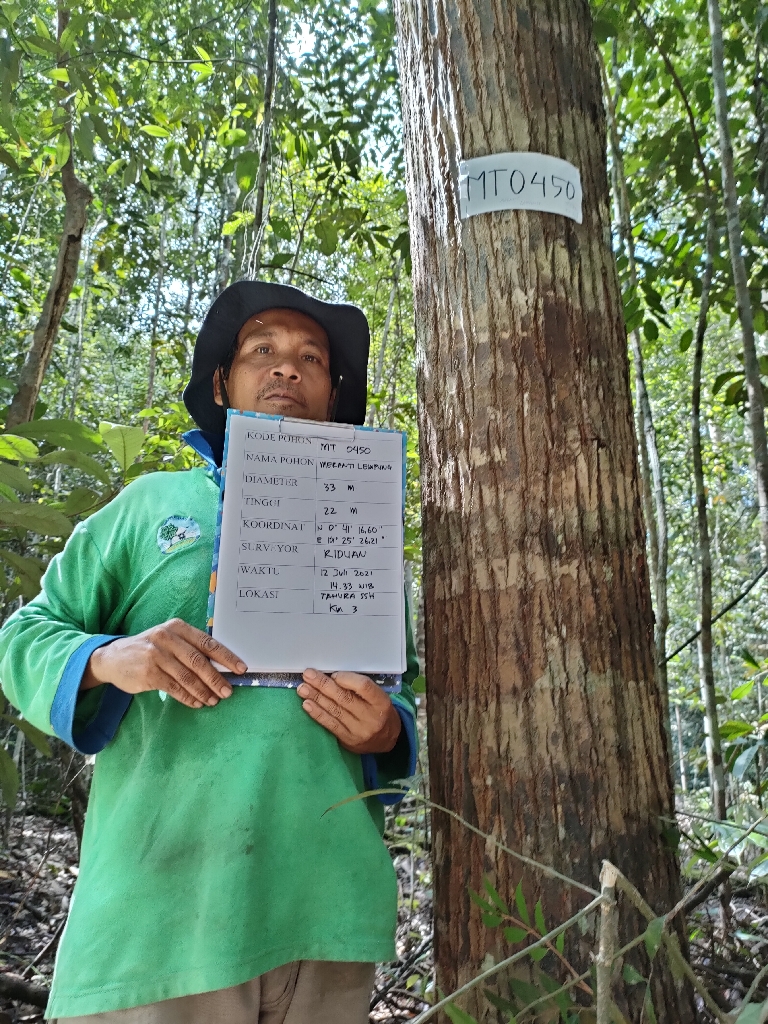 MT0450
KODE POHON MT 0450
NAMA POHON MERANTI LEMPUNG
DIAMETER 33 M
TINGGI 22 M
KOORDINAT N 0° 41' 16.60"
E 101° 25' 26.21"
SURVEYOR RIDUAN
WAKTU 12 JULI 2021
14.33 WIB
LOKASI TAHURA SSH
KM 3